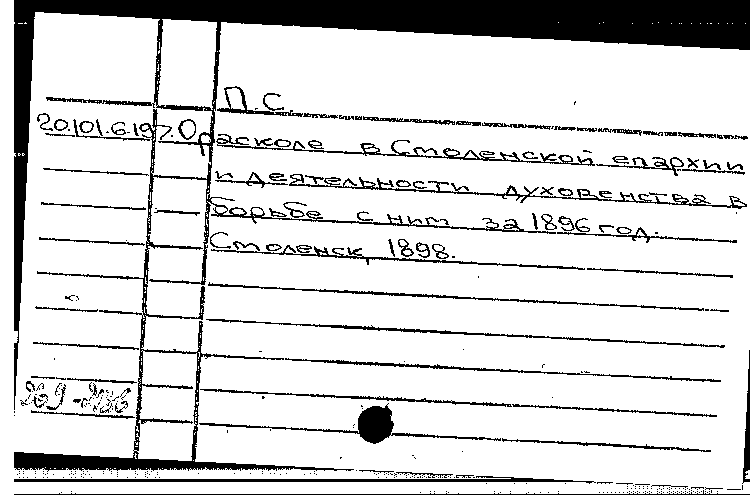 П.С.
20.101.6.197. О расколе в Смоленской епархии
и деятельности духовенства в
борьбе с ним за 1896 год.
Смоленск, 1898.